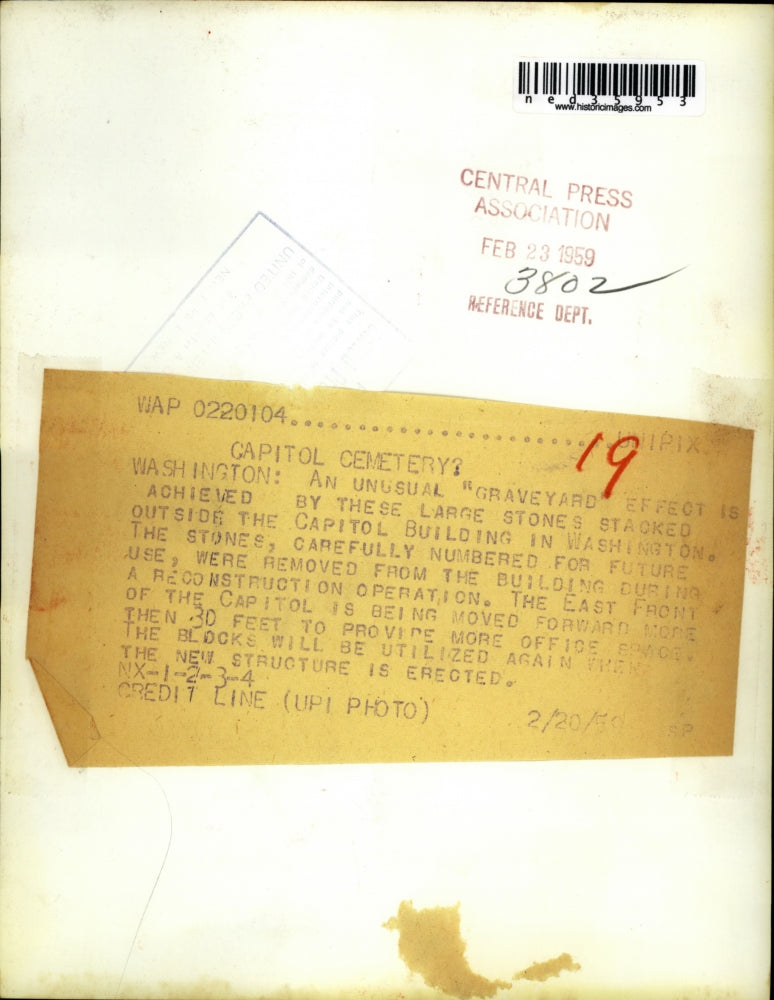 ned35953
www.historicimages.com
CENTRAL PRESS
ASSOCIATION
FEB 23 1959
3802
REFERENCE DEPT.
UNITED
WAP 0220104..............................UNIPIX
19
CAPITOL CEMETERY?
WASHINGTON: AN UNUSUAL "GRAVEYARD" EFFECT IS
ACHIEVED BY THESE LARGE STONES STACKED
OUTSIDE THE CAPITOL BUILDING IN WASHINGTON.
THE STONES, CAREFULLY NUMBERED FOR FUTURE
USE, WERE REMOVED FROM THE BUILDING DURING
A RECONSTRUCTION OPERATION. THE EAST FRONT
OF THE CAPITOL IS BEING MOVED FORWARD MORE
THEN 30 FEET TO PROVIDE MORE OFFICE SPACE.
THE BLOCKS WILL BE UTILIZED AGAIN WHEN
THE NEW STRUCTURE IS ERECTED.
NX-1-2-3-4
CREDIT LINE (UPI PHOTO) 2/20/59 SP